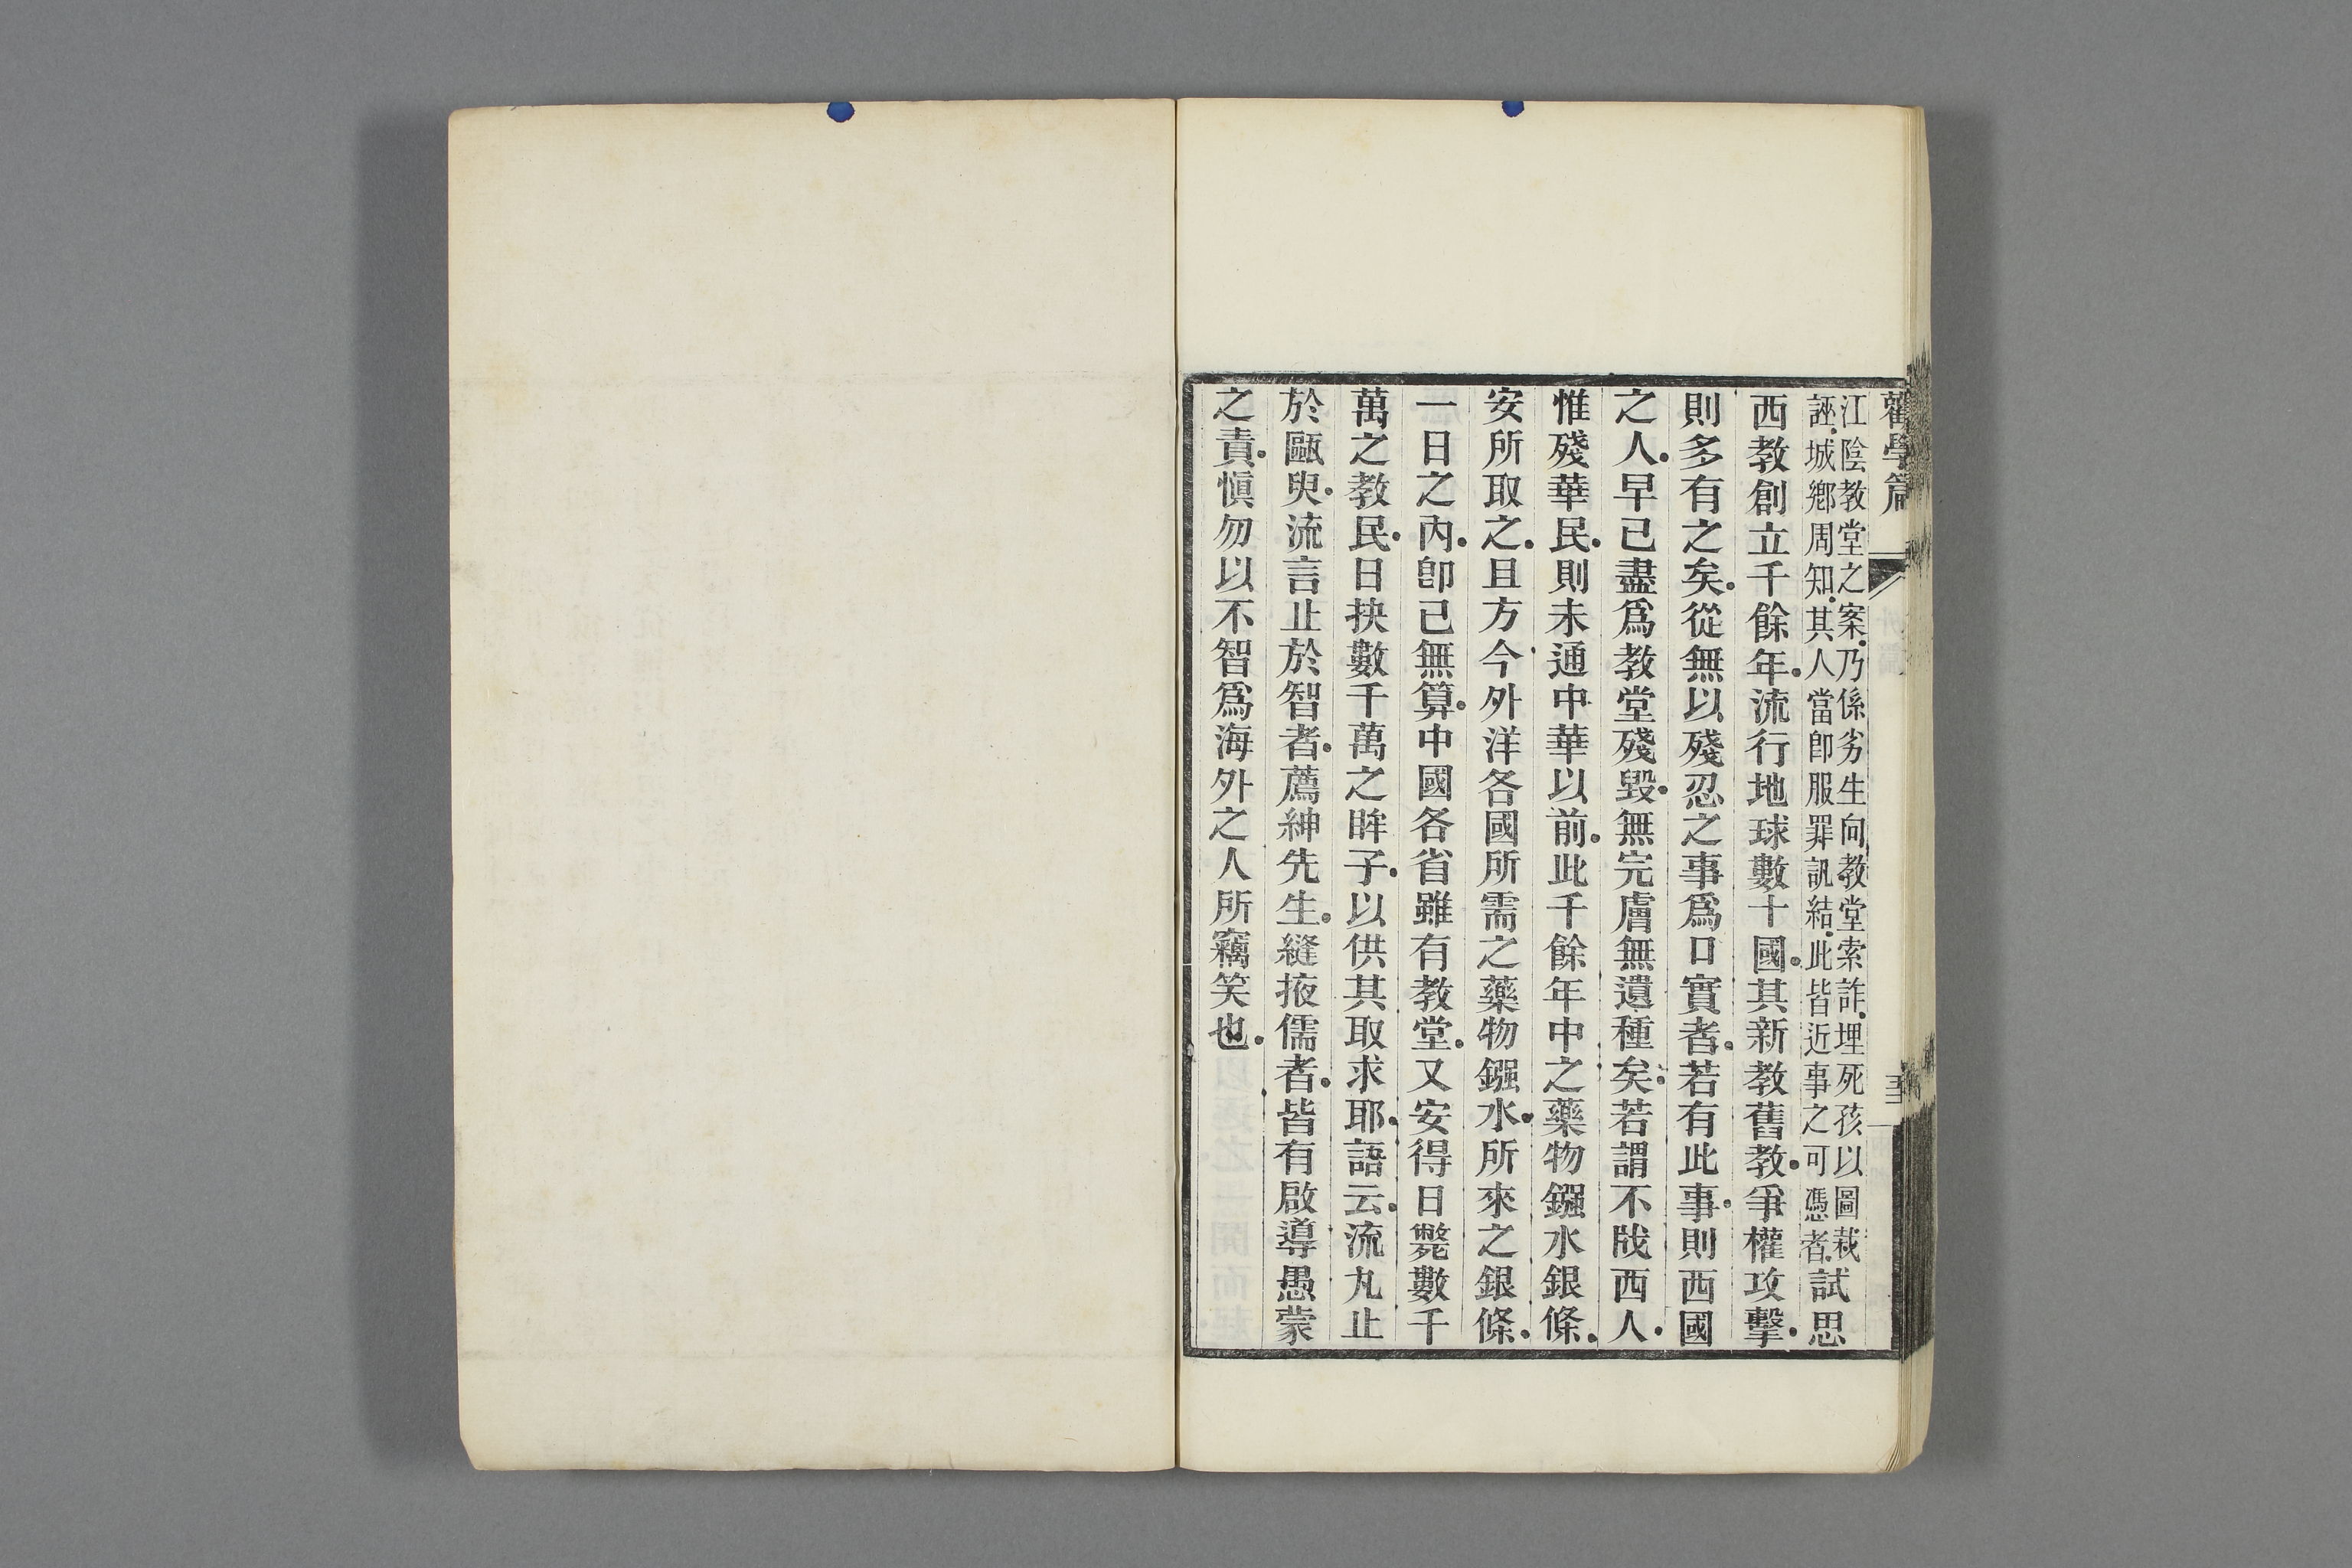 勸學篇
江陰教堂之案乃係劣生向教堂索詐埋死孩以圖栽
誣城鄉周知其人當卽服罪訊結此皆近事之可憑者試思
西教創立千餘年流行地球數十國其新教舊教爭權攻擊
則多有之矣從無以殘忍之事爲口實者若有此事則西國
之人早已盡爲教堂殘毀無完膚無遺種矣若謂不戕西人
惟殘華民則未通中華以前此千餘年中之藥物鏹水銀條
安所取之且方今外洋各國所需之藥物鏹水所來之銀條
一日之內卽已無算中國各省雖有教堂又安得日斃數千
萬之教民日抉數千萬之眸子以供其取求耶語云流丸止
於甌臾流言止於智者薦紳先生縫掖儒者皆有啟導愚蒙
之責愼勿以不智爲海外之人所竊笑也